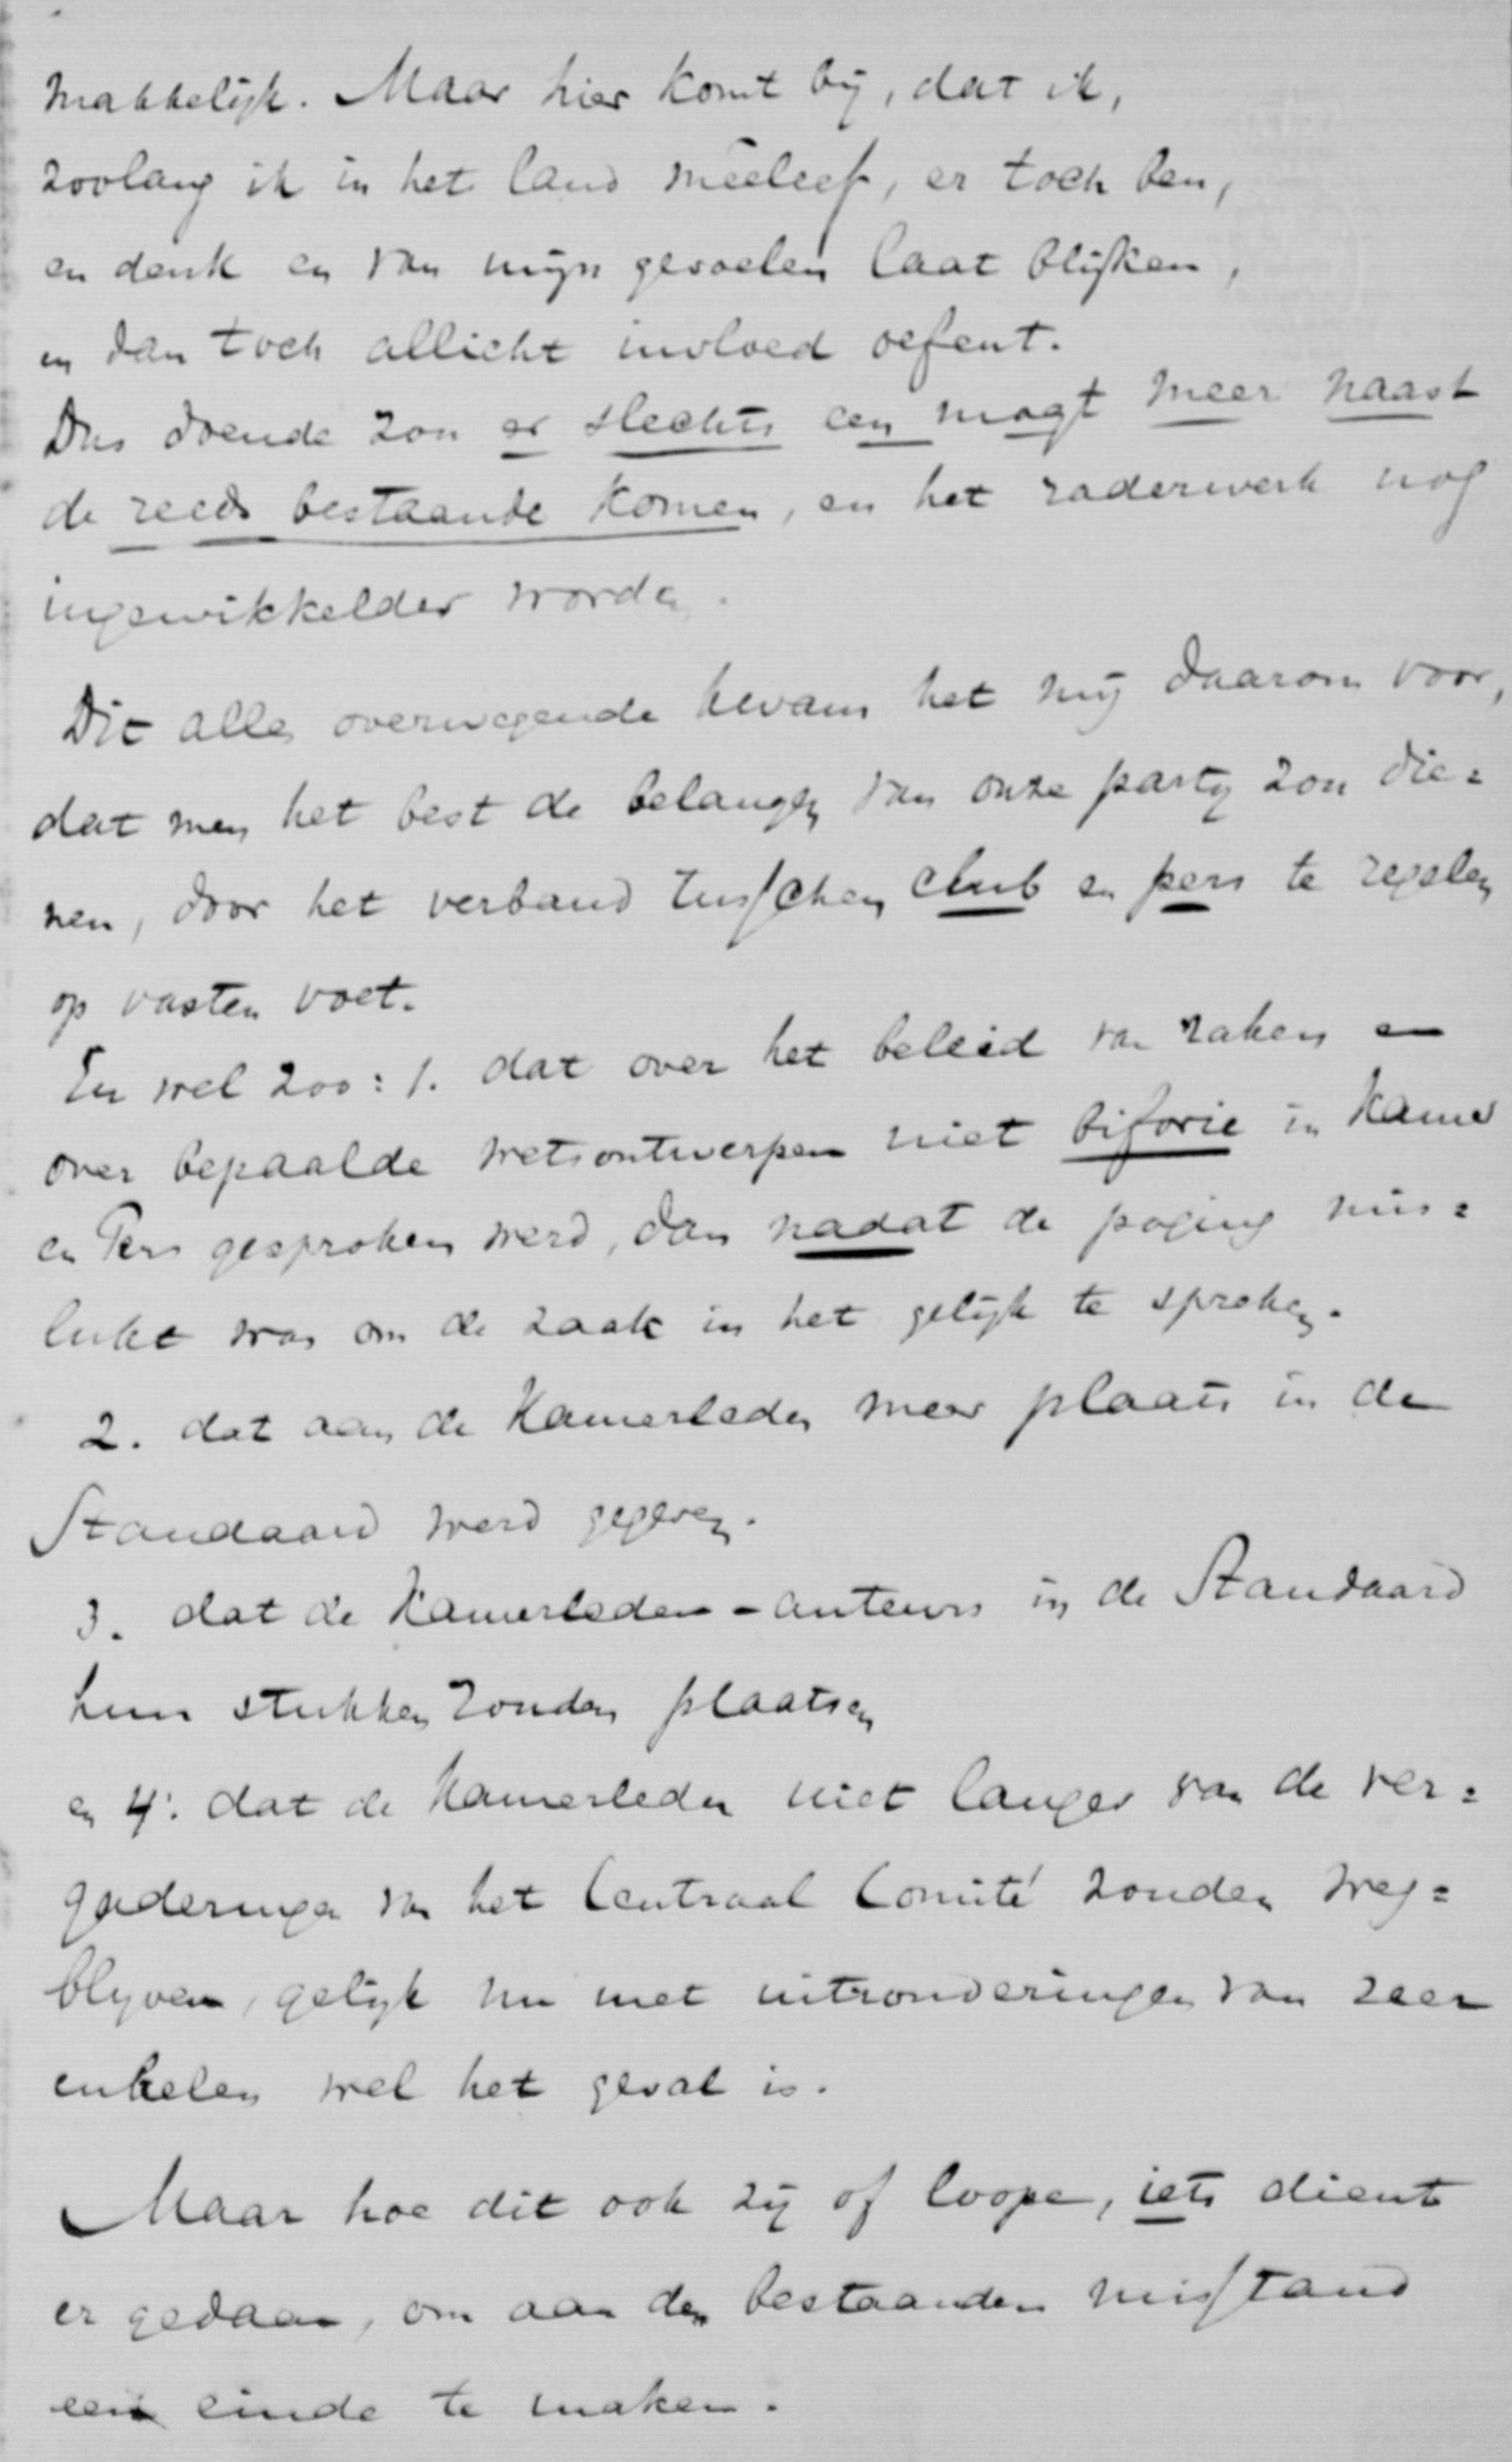 makkelijk. Maar hier komt bij, dat ik,
zoolang ik in het land meeleef, er toch ben,
en denk en van mijn gevoelen laat blijken,
en dan toch allicht invloed oefent.
Dus doende zou er slechts een magt meer naast
de reeds bestaande komen, en het raderwerk nog
ingewikkelder worden.
Dit alles overwegende kwam het mij daarom voor,
dat men het best de belangen van onze party zou die=
nen, door het verband tusschen club en pers te regelen
op vasten voet.
En wel zoo: 1. dat over het beleid van zaken en
over bepaalde wetsontwerpen niet biforie in Kamer
en Pers gesproken werd, dan nadat de poging mis=
lukt was om de zaak in het gelijk te spreken.
2. dat aan de Kamerleden meer plaats in de
Standaard werd gegeven.
3. dat de Kamerleden-auteurs in de Standaard
hun stukken zouden plaatsen
en 4: dat de Kamerleden niet langer van de ver=
gaderingen van het Centraal Comité zouden weg=
blyven, gelijk nu met uitzonderingen van zeer
enkelen wel het geval is.
Maar hoe dit ook zij of loope, iets dient
er gedaan, om aan den bestaanden misstand
een einde te maken.